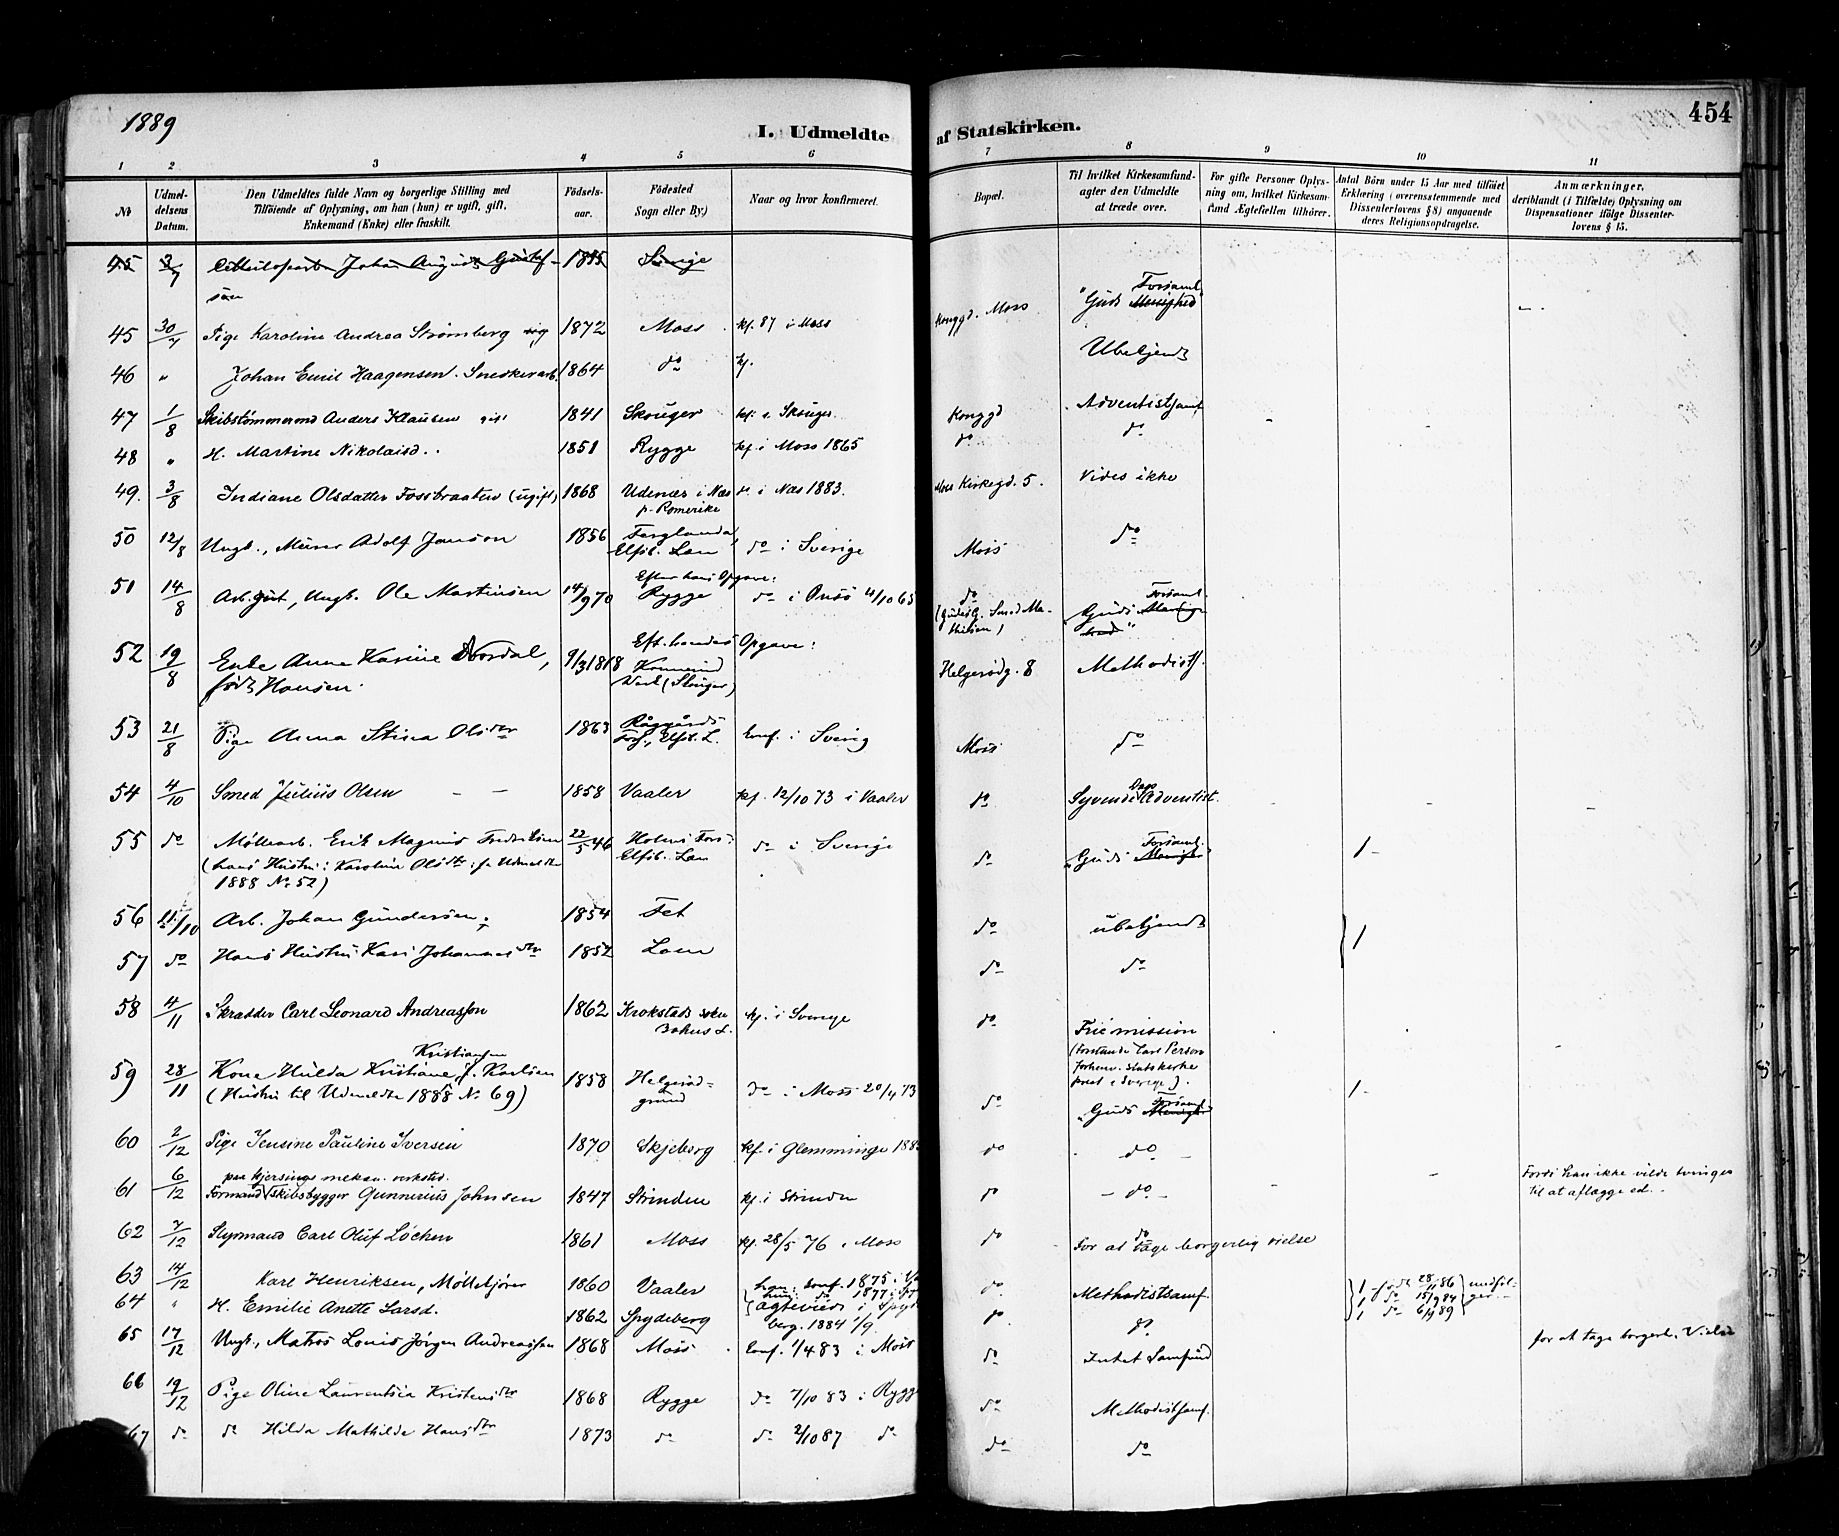 1889
454
I. Udmeldte af Statskirken.
1 2 3 4 5 6 7 8 9 10 11
№
Udmel-
delsens
Datum.
Den Udmeldtes fulde Navn og borgerlige Stilling med
Tilföiende af Oplysning, om han (hun) er ugift, gift,
Enkemand (Enke) eller fraskilt.
Födsels-
aar.
Födested
Sogn eller By.)
Naar og hvor konfirmeret.
Bopæl.
Til hvilket Kirkesamfund
agter den Udmeldte
at træde over.
For gifte Personer Oplys-
ning om, hvilket Kirkesam-
fund Ægtefællen tilhörer.
Antal Börn under 15 Aar med tilföiet
Erklæring (overensstemmende med
Dissenterlovens § 8) angaaende
deres Religionsopdragelse.
Anmærkninger,
deriblandt (i Tilfælde) Oplysning om
Dispensationer ifölge Dissenter-
lovens § 15.
45 Johan August Gustaf-
sön Sverige
45 30/7 Pige Karoline Andrea Strömberg ug 1872 Moss kf. 87 i Moss Konggd. Moss "Guds Menighed" Forsaml.
46 " Johan Emil Haagensen. Snedkerarb. 1864 do kf. Ubekjendt
47 1/8 Skibstömmermand Anders Klausen gift 1841 Skouger kf. i Skouger Konggd Adventistsamf -
48 " H. Martine Nikolaisd. 1851 Rygge kf. i Moss 1865 do do
49. 3/8 Indiane Olsdatter Fossbraaten (ugift) 1868 Udenæs i Næs
p. Romerike i Næs 1883. Moss Kirkegd. 5. Vides ikke
50 12/8 Ungk., Murer Adolf Janson 1856 Elfsb. Læn do i Sverige Moss do
51 14/8 Arb.gut, Ungk. Ole Martinsen 14/9 70 Efter hans Opgave:
Rygge do i Onsö 4/10 65 do
(Smed Ma-
thisen) "Guds Menig-
hed" Forsaml.
52 19/8 Enke Anne Karine Nordal,
födt Hansen. 9/3 1818 Eft. hendes Opgave:
(Skouger) Helgerödg. 8 Methodistf.
53 21/8 Pige Anna Stina Olsdtr 1863 Elfsb. L. konf. i Sverig Moss do
54 4/10 Smed Julius Olsen - - 1858 Vaaler kf. 12/10 73 i Vaaler do Syvende Dags Adventist.
55 do Möllearb. Erik Magnus Fredriksen 22/5 46
(hans Hustru: Karoline Olsdtr: f. Udmeldte
1888 No 52)
Elfsb. Læn do i Sverige do "Guds Menigh" Forsaml. 1 -
56 11/10 Arb. Johan Gundersen; 1854 Fet do ubekjendt 1
57 do Hans Hustru Kari Johannesdtr 1852 Lom do do
58 4/11 Skrædder Carl Leonard Andreasson 1862 Krokstads soken
Bohus L. kf. i Sverige do Fri mission
(Forstander Carl Person
forhenv. statskirke
prest i Sverige).
59 28/11 Kone Hulda Kristiane Kristiansen f. Karlsen
(Hustru til Udmeldte 1888 No 69) 1858 Helgeröd-
grund do i Moss 20/4 73 do "Guds Menigh" Forsaml 1 -
60 2/12 Pige Jensine Pauline Iversen 1870 Skjeberg kf. i Glemminge 188 do do -
61 6/12 paa Kjersings mekan. verksted.
Formand/skibsbygger Gunnerius Johnsen 1847 Strinden kf. i Strinden do - do - - Fordi han ikke vilde tvinges
til at aflægge ed. -
62 7/12 Styrmand Carl Oluf Löchen 1861 Moss kf. 28/5 76 i Moss do do
For at tage borgerlig vielse
63 14/12 Karl Henriksen, Möllekjörer 1860 Vaaler han: konf. 1875 i do Methodistsamf. 1 födt 28/11 86 medföl-
64 " H. Emilie Anette Larsd. 1862 Spydeberg hun: do 1877 i
ægteviet i Spyde
berg. 1884 do do 1 do 15/9 84 ger. -
1 do 6/9 89
65 17/12 Ungk., Matros Louis Jörgen Andreassen 1868 Moss konf. 1/4 83 i Moss do Intet Samfund for at tage borgerl. Vielse
66 19/12 Pige Oline Laurentsia Kristensdtr 1868 Rygge do 7/10 83 i Rygge do Methodistsamf.
67 do do Hilda Mathilde Hansdtr 1873 do do 2/10 87 do do do